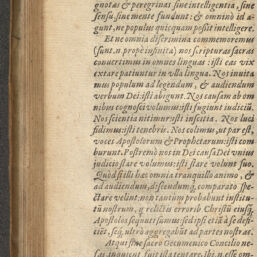 gnotas & peregrinas sine intelligentia, sine
sensu, sine mente fundunt: & omninò id a-
gunt, ne populus quicquam possit intelligere.
Et ne omnia discrimina commemoremus
(sunt. n. propè infinita) nos scripturas sacras
conuertimus in omnes linguas: isti eas vix
extare patiuntur in vlla lingua. Nos inuita
mus populum ad legendum, & audiendum
verbum Dei: isti abigunt. Nos causam ab om
nibus cognosci volumus: isti fugiunt iudiciũ.
Nos scientia nitimur: isti inscitia. Nos luci
fidimus: isti tenebris. Nos colimus, ut par est,
voces Apostolorum & Prophetarum: isti com
burunt. Postremò nos in Dei causa Dei vnius
iudicio stare volumus: isti stare volunt suo.
Quòd si illi hæc omnia tranquillo animo, &
ad audiendum, discendumq́; comparato spe-
ctare velint: non tantum probabunt institu-
tũ nostrum, q relictis errorib. Christũ eiusq́;
Apostolos sequuti sumus: sed ipsi etiã à se defi-
ciẽt, seq́; ultrò aggregabũt ad partes nostras.
At qui sine sacro Oecumenico Concilio ne-
fas, inquient, fuit ista tentare. ibi. n. esse om-